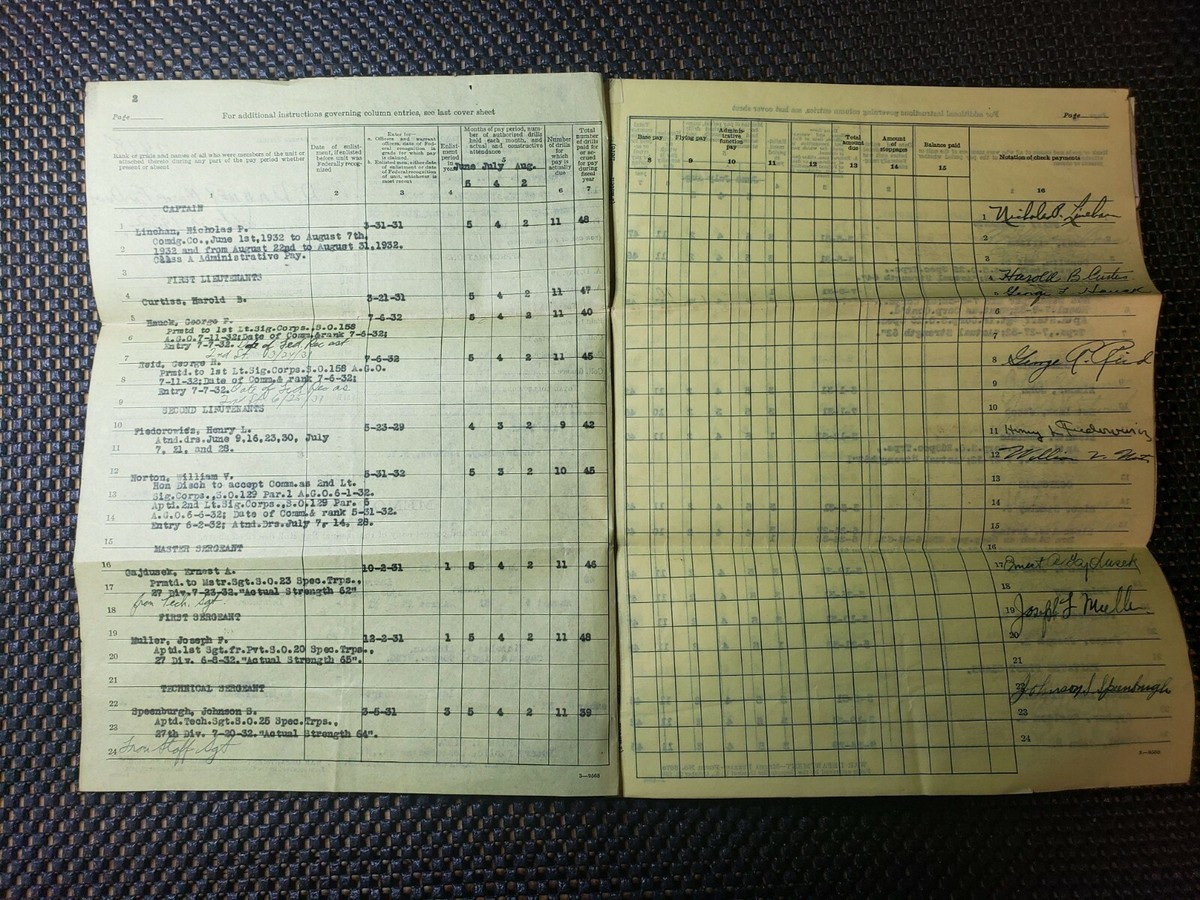 2
Page
For additional instructions governing column entries, see last cover sheet
Rank or grade and names of all who were members of the unit or
attached thereto during any part of the pay period whether
present or absent
Date of enlist-
ment, if enlisted
before unit was
Federally recog-
nized
Months of pay period, num-
ber of authorized drills
held each month, and
actual and constructive
attendance
June July Aug.
5 4 2
Number
of drills
for
which
pay is
actually
due
Total
number
of drills
paid for
or ac-
crued
for pay
during
fiscal
year
1 2 3 4 6 7
CAPTAIN
1 Linehan, Nicholas P. 3-31-31 5 4 2 11 48
Comdg.Co.,June 1st,1932 to August 7th,
2 1932 and from August 22nd to August 31,1932.
Class A Administrative Pay.
3
FIRST LIEUTENANTS
4 Curtiss, Harold B. 3-21-31 5 4 2 11 47
5 Hauck, George F. 7-6-32 5 4 2 11 40
Prmtd to 1st Lt.Sig.Corps.,S.O.158
6 A.G.O.7-11-32;Date of Comm.&rank 7-6-32;
Entry 7-7-32. Date of Fed. Rec as
7 Reid, George R. 7-6-32 5 4 2 11 45
Prmtd.to 1st Lt.Sig.Corps.,S.O.158 A.G.O.
8 7-11-32;Date of Comm.& rank 7-6-32;
Entry 7-7-32. Date of Fed Rec as
9
SECOND LIEUTENANTS
10 Fiedorowicz, Henry L. 5-23-29 4 3 2 9 42
Atnd.drs.June 9,16,23,30, July
11 7, 21, and 28.
12 Norton, William V. 5-31-32 5 3 2 10 45
Hon Disch to accept Comm.as 2nd Lt.
13 Sig.Corps.,S.O.129 Par.1 A.G.O.6-1-32.
Aptd.2nd Lt.Sig.Corps.,S.O.129 Par. 5
14 A.G.O.6-6-32; Date of Comm.& rank 5-31-32.
Entry 6-2-32; Atnd.Drs.July 7, 14, 28.
15
MASTER SERGEANT
16 Gajdusek, Ernest A. 10-2-31 1 5 4 2 11 46
Prmtd.to Mstr.Sgt.S.O.23 Spec.Trps.,
17 27 Div.7-23-32."Actual Strength 62"
from Tech. Sgt.
18 FIRST SERGEANT
19 Muller, Joseph F. 12-2-31 1 5 4 2 11 48
Aptd.1st Sgt.fr.Pvt.S.O.20 Spec.Trps.,
20 27 Div. 6-8-32."Actual Strength 65".
21
TECHNICAL SERGEANT
22 Speenburgh, Johnson S. 3-5-31 3 5 4 2 11 39
Aptd.Tech.Sgt.S.O.25 Spec.Trps.,
23 27th Div. 7-20-32."Actual Strength 64".
24 From Staff Sgt
Page
Base pay Flying pay Adminis-
trative
function
pay
Total
amount
due
Amount
of
stoppages
Balance paid
Notation of check payments
8 9 10 11 12 13 14 15 16
1 Nicholas P. Linehan
2
3
Harold B Curtiss
George F. Hauck
6
7
8 George R. Reid
9
10
11 Henry L. Fiedorowicz
12 William V. Norton
13
14
15
16
17 Ernest A Gajdusek
18
19 Joseph F Muller
20
21
22 Johnson S Speenburgh
23
24